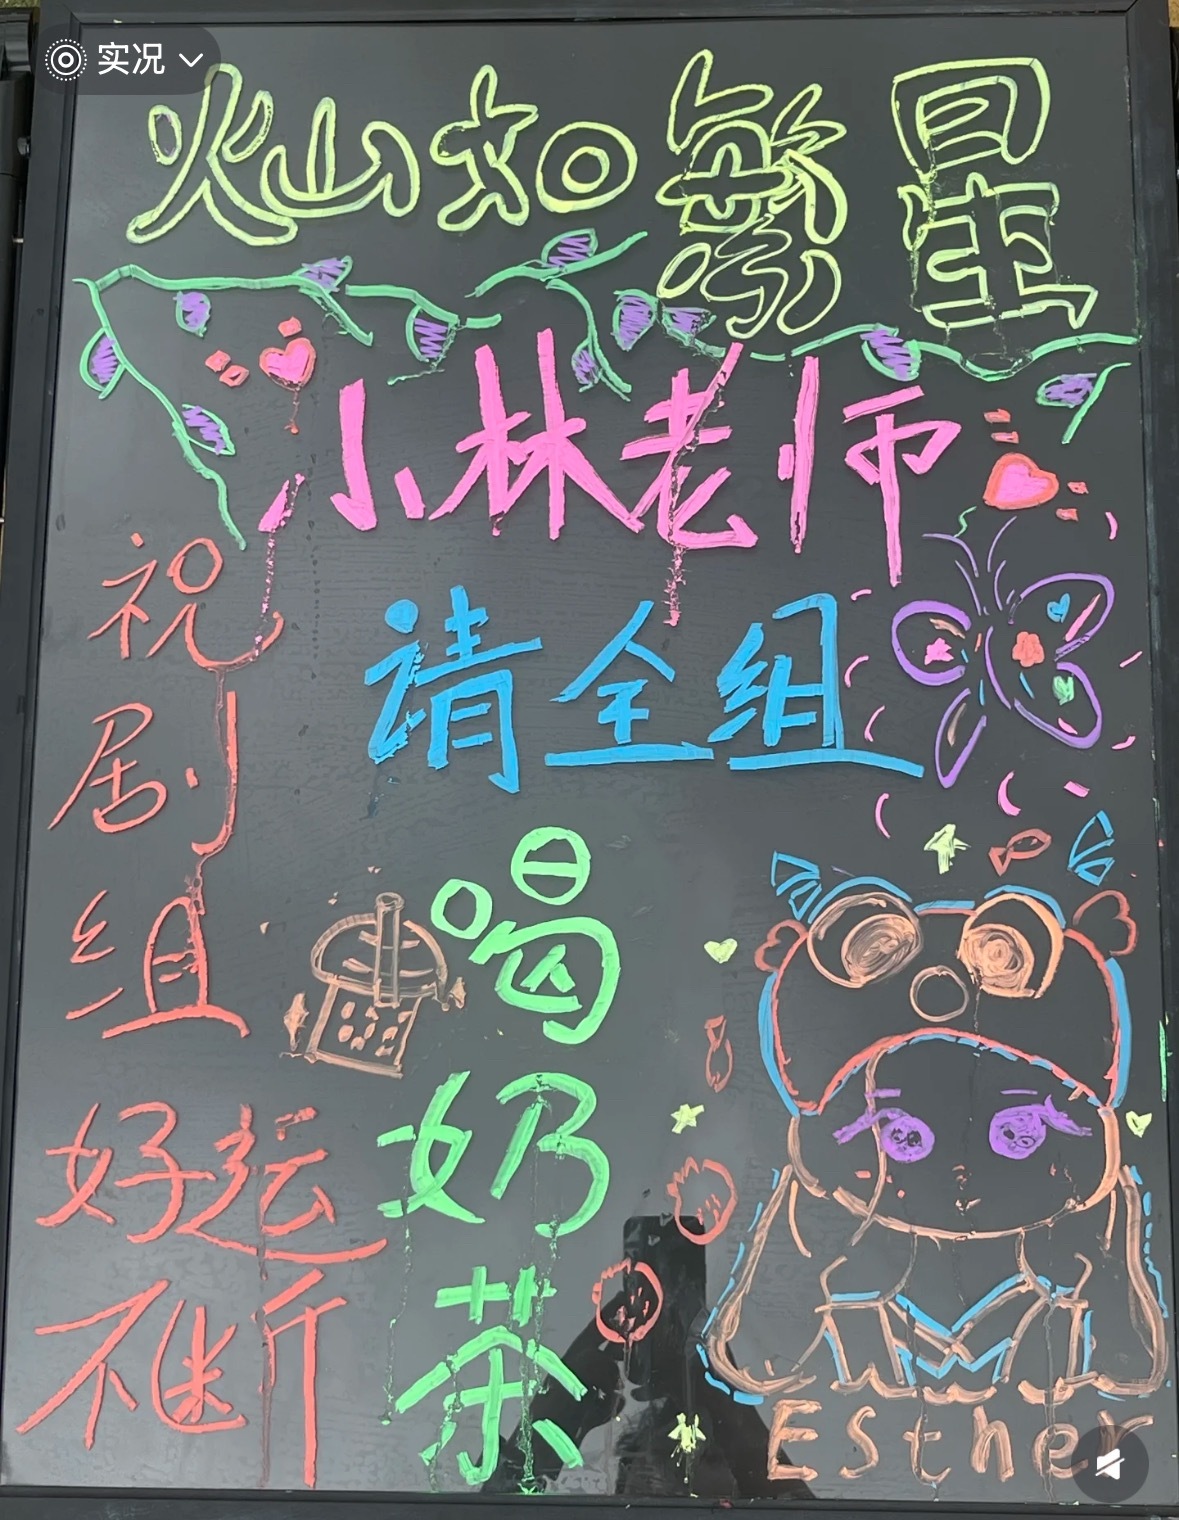 实况
灿如繁星
小林老师
请全组
喝奶茶
祝剧组
好运不断
Esther